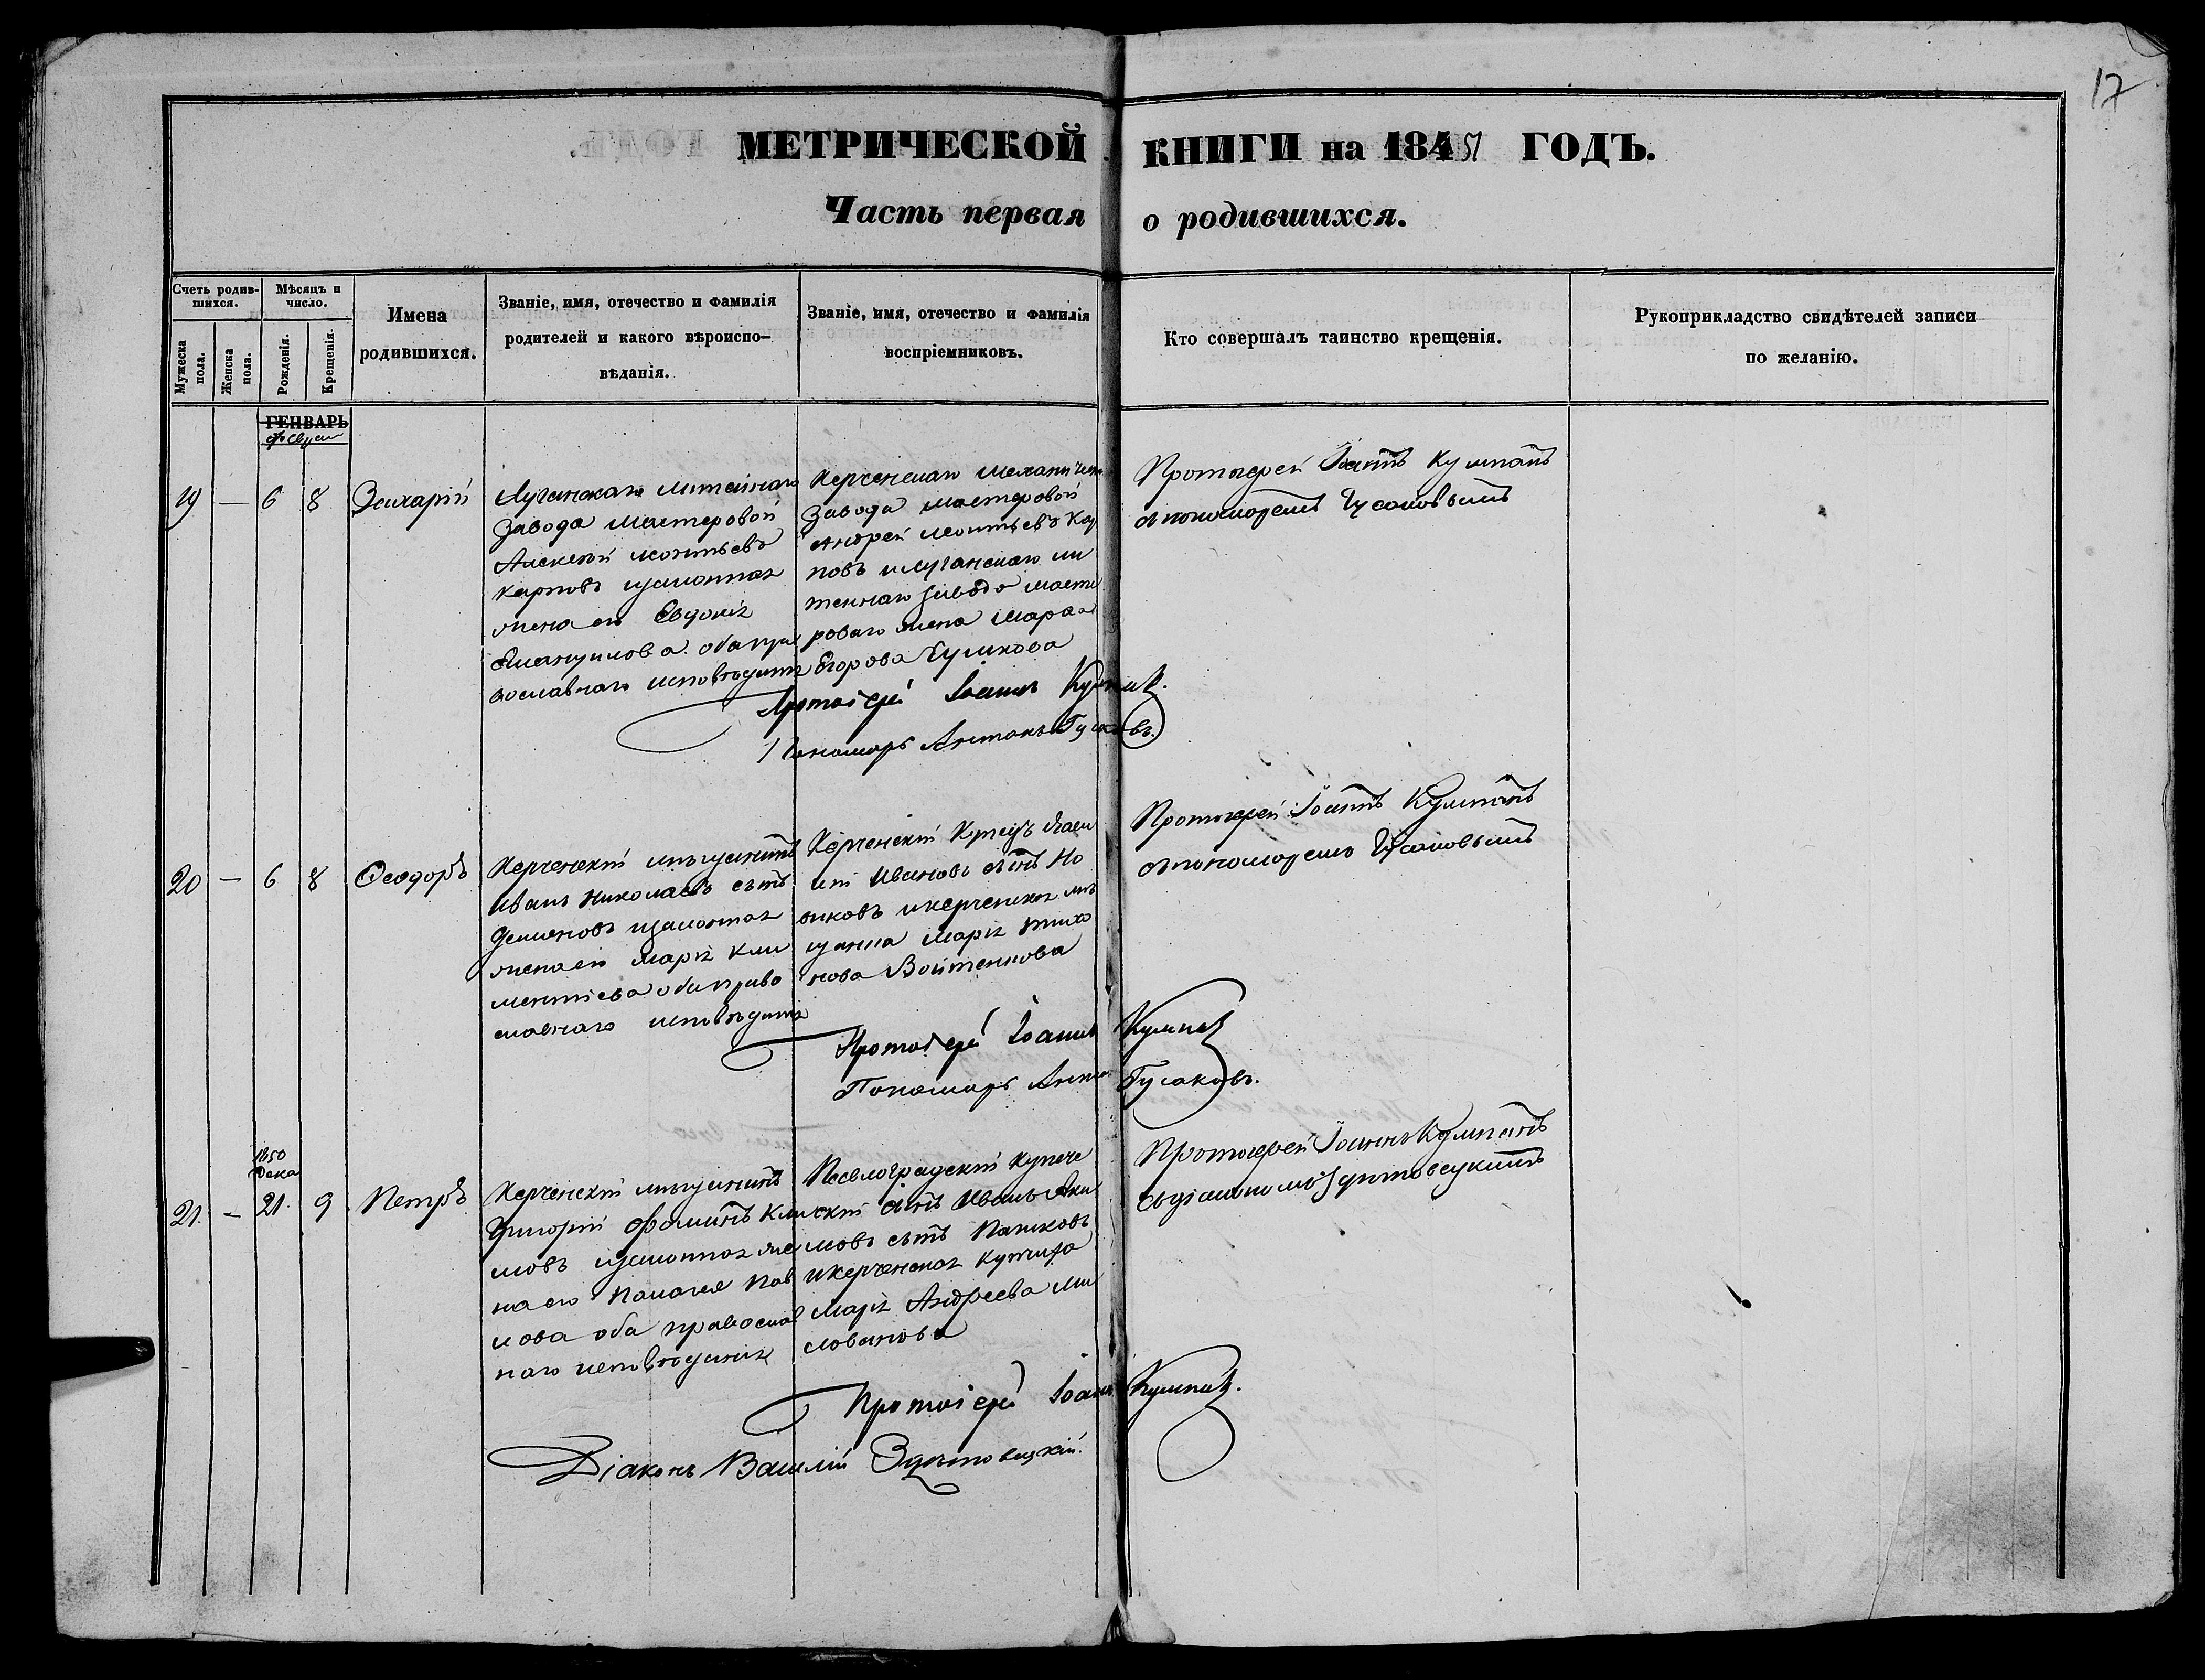 17
МЕТРИЧЕСКОЙ КНИГИ на 1851 ГОДЪ.
Часть первая о родившихся.
Счетъ родив-
шихся.
Мѣсяцъ и
число.
Мужеска
пола.
Женска
пола.
Рожденія.
Крещенія.
Имена
родившихся.
Званіе, имя, отечество и фамилія
родителей и какого вѣроиспо-
вѣданія.
Званіе, имя, отечество и фамилія
воспріемниковъ.
Кто совершалъ таинство крещенія.
Рукоприкладство свидѣтелей записи
по желанію.
ГЕНВАРЬ
19 — 6 8 Захарій
Луганскаго Литейнаго
Завода мастеровой
Алексѣй Леонтьевъ
Карповъ и законная
жена его Евдокія
Емануилова оба пра
вославнаго исповѣданія
Керченскаго Механичес
Завода мастеровой
Андрей Леонтьевъ Кар
повъ и Луганскаго ли
тейнаго завода масте
роваго жена
Егорова
Протоіерей Іоаннъ Кумпанъ
съ пономаремъ Гусаковымъ
Протоіерей Іоаннъ Кумпанъ.
Пономарь Антонъ Гусаковъ.
20 — 6 8 Ѳеодоръ
Керченскій мѣщанинъ
Иванъ Николаевъ сынъ
Деменовъ и законная
жена его Марія Кли
ментіева оба право
славнаго исповѣданія
Керченскій Купецъ
Ивановъ сынъ Но
виковъ и керченская мѣ
щанка Марія Тихо
нова Войтенкова
Протоіерей Іоаннъ Кумпанъ
съ пономаремъ Гусаковымъ
Протоіерей Іоаннъ Кумпанъ
Пономарь Антонъ Гусаковъ.
1850
Дека
21. — 21. 9 Петръ
Керченскій мѣщанинъ
Григорій Фоминъ Кли
мовъ и законная же
на его Пелагея Пав
лова оба православ
наго исповѣданія
купече
скій сынъ Иванъ Аки
мовъ сынъ Пашковъ
и керченская купчиха
Марія Андреева Ми
лованова
Протоіерей Іоаннъ Кумпанъ
съ діакономъ Здитовецкимъ
Протоіерей Іоаннъ Кумпанъ.
Діаконъ Василій Здитовецкій.